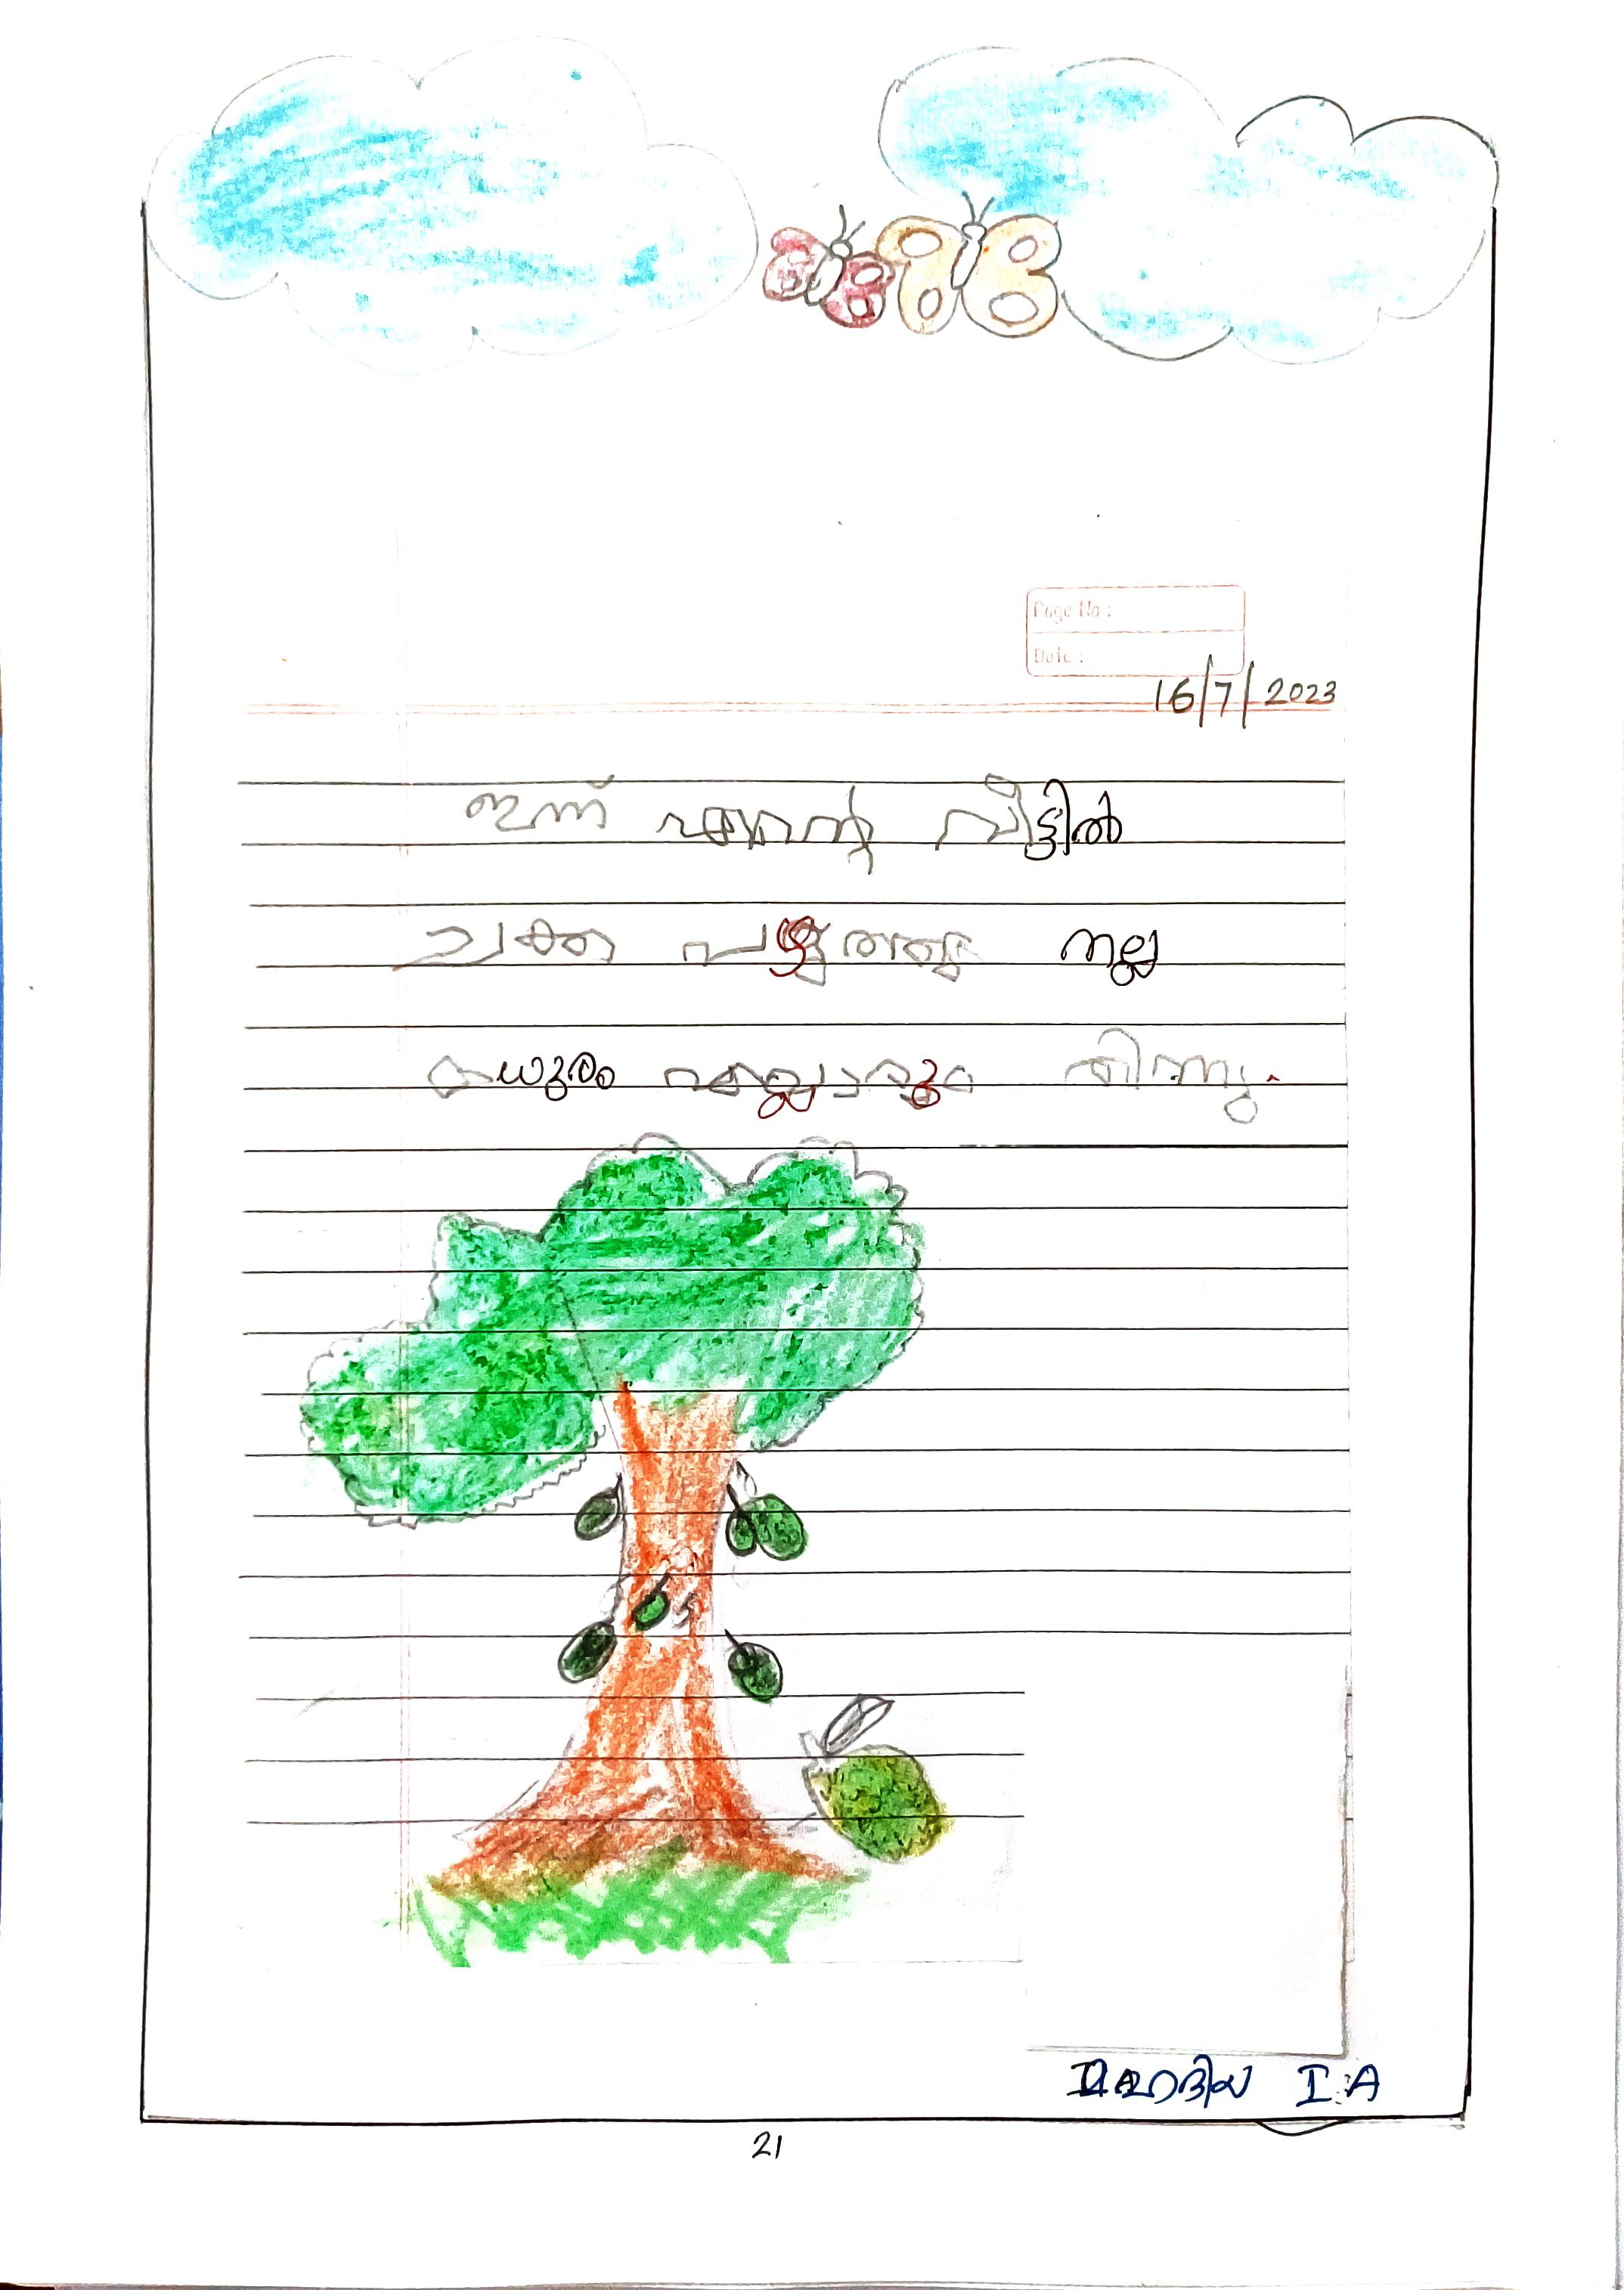 Page No :
Date :
16/7/2023
ഇന്ന് എന്റെ വീട്ടിൽ
ചക്ക പഴുത്തു നല്ല
മധുരം എല്ലാരും തിന്നു.
I A
21